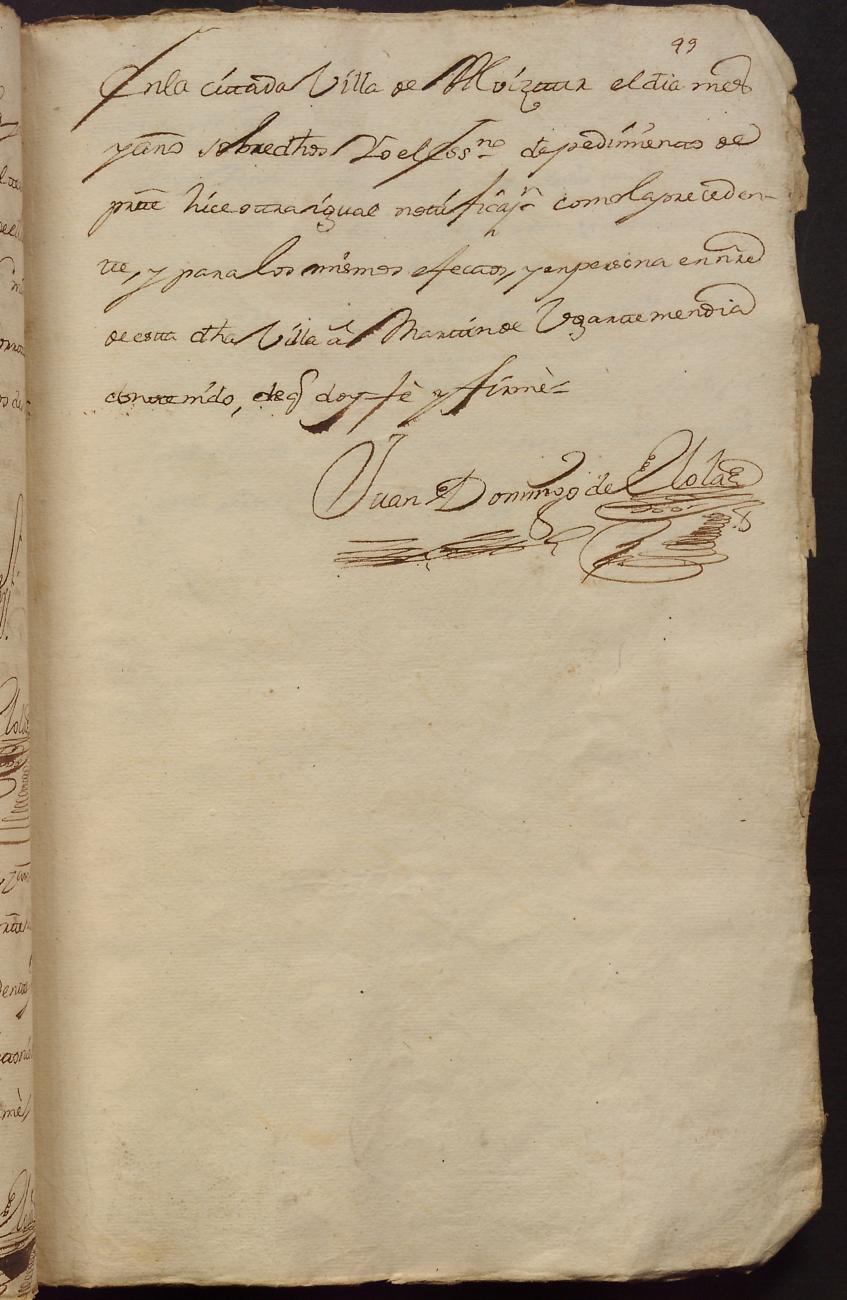 99
En la cittada Villa de Alvizttur el dia mes
y año sobredhos Yo el Ess.no de pedimiento de
partte hice ottra igual nottificaz.n como la preceden-
tte, y para los mismos efecttos, y en persona en nre
de estta dha Villa â Marttin de Ugarttemendia
conttenido, de q doy fè y firmè=
Juan Domingo de Elola